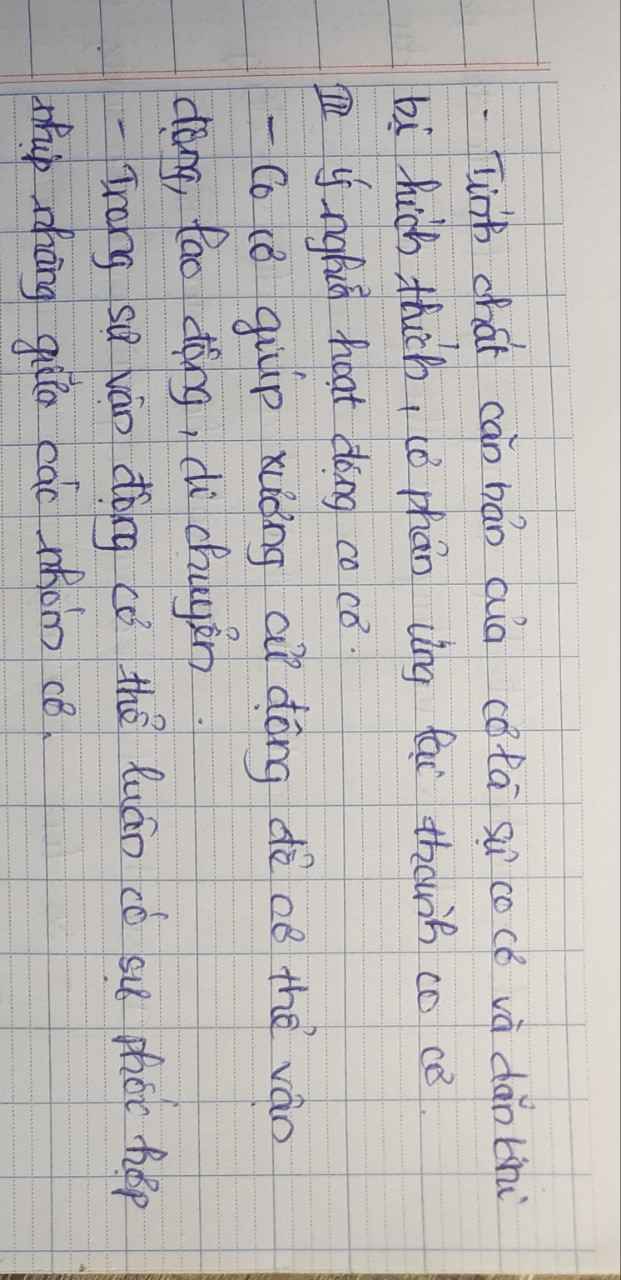 - Tính chất căn bản của cơ là sự co cơ và dãn khi
bị kích thích, cơ phản ứng lại thành co cơ.
III ý nghĩa hoạt động co cơ.
- Co cơ giúp xương cử động để cơ thể vận
động, lao động, di chuyển.
- Trong sự vận động cơ thể luôn có sự phối hợp
nhịp nhàng giữa các nhóm cơ.